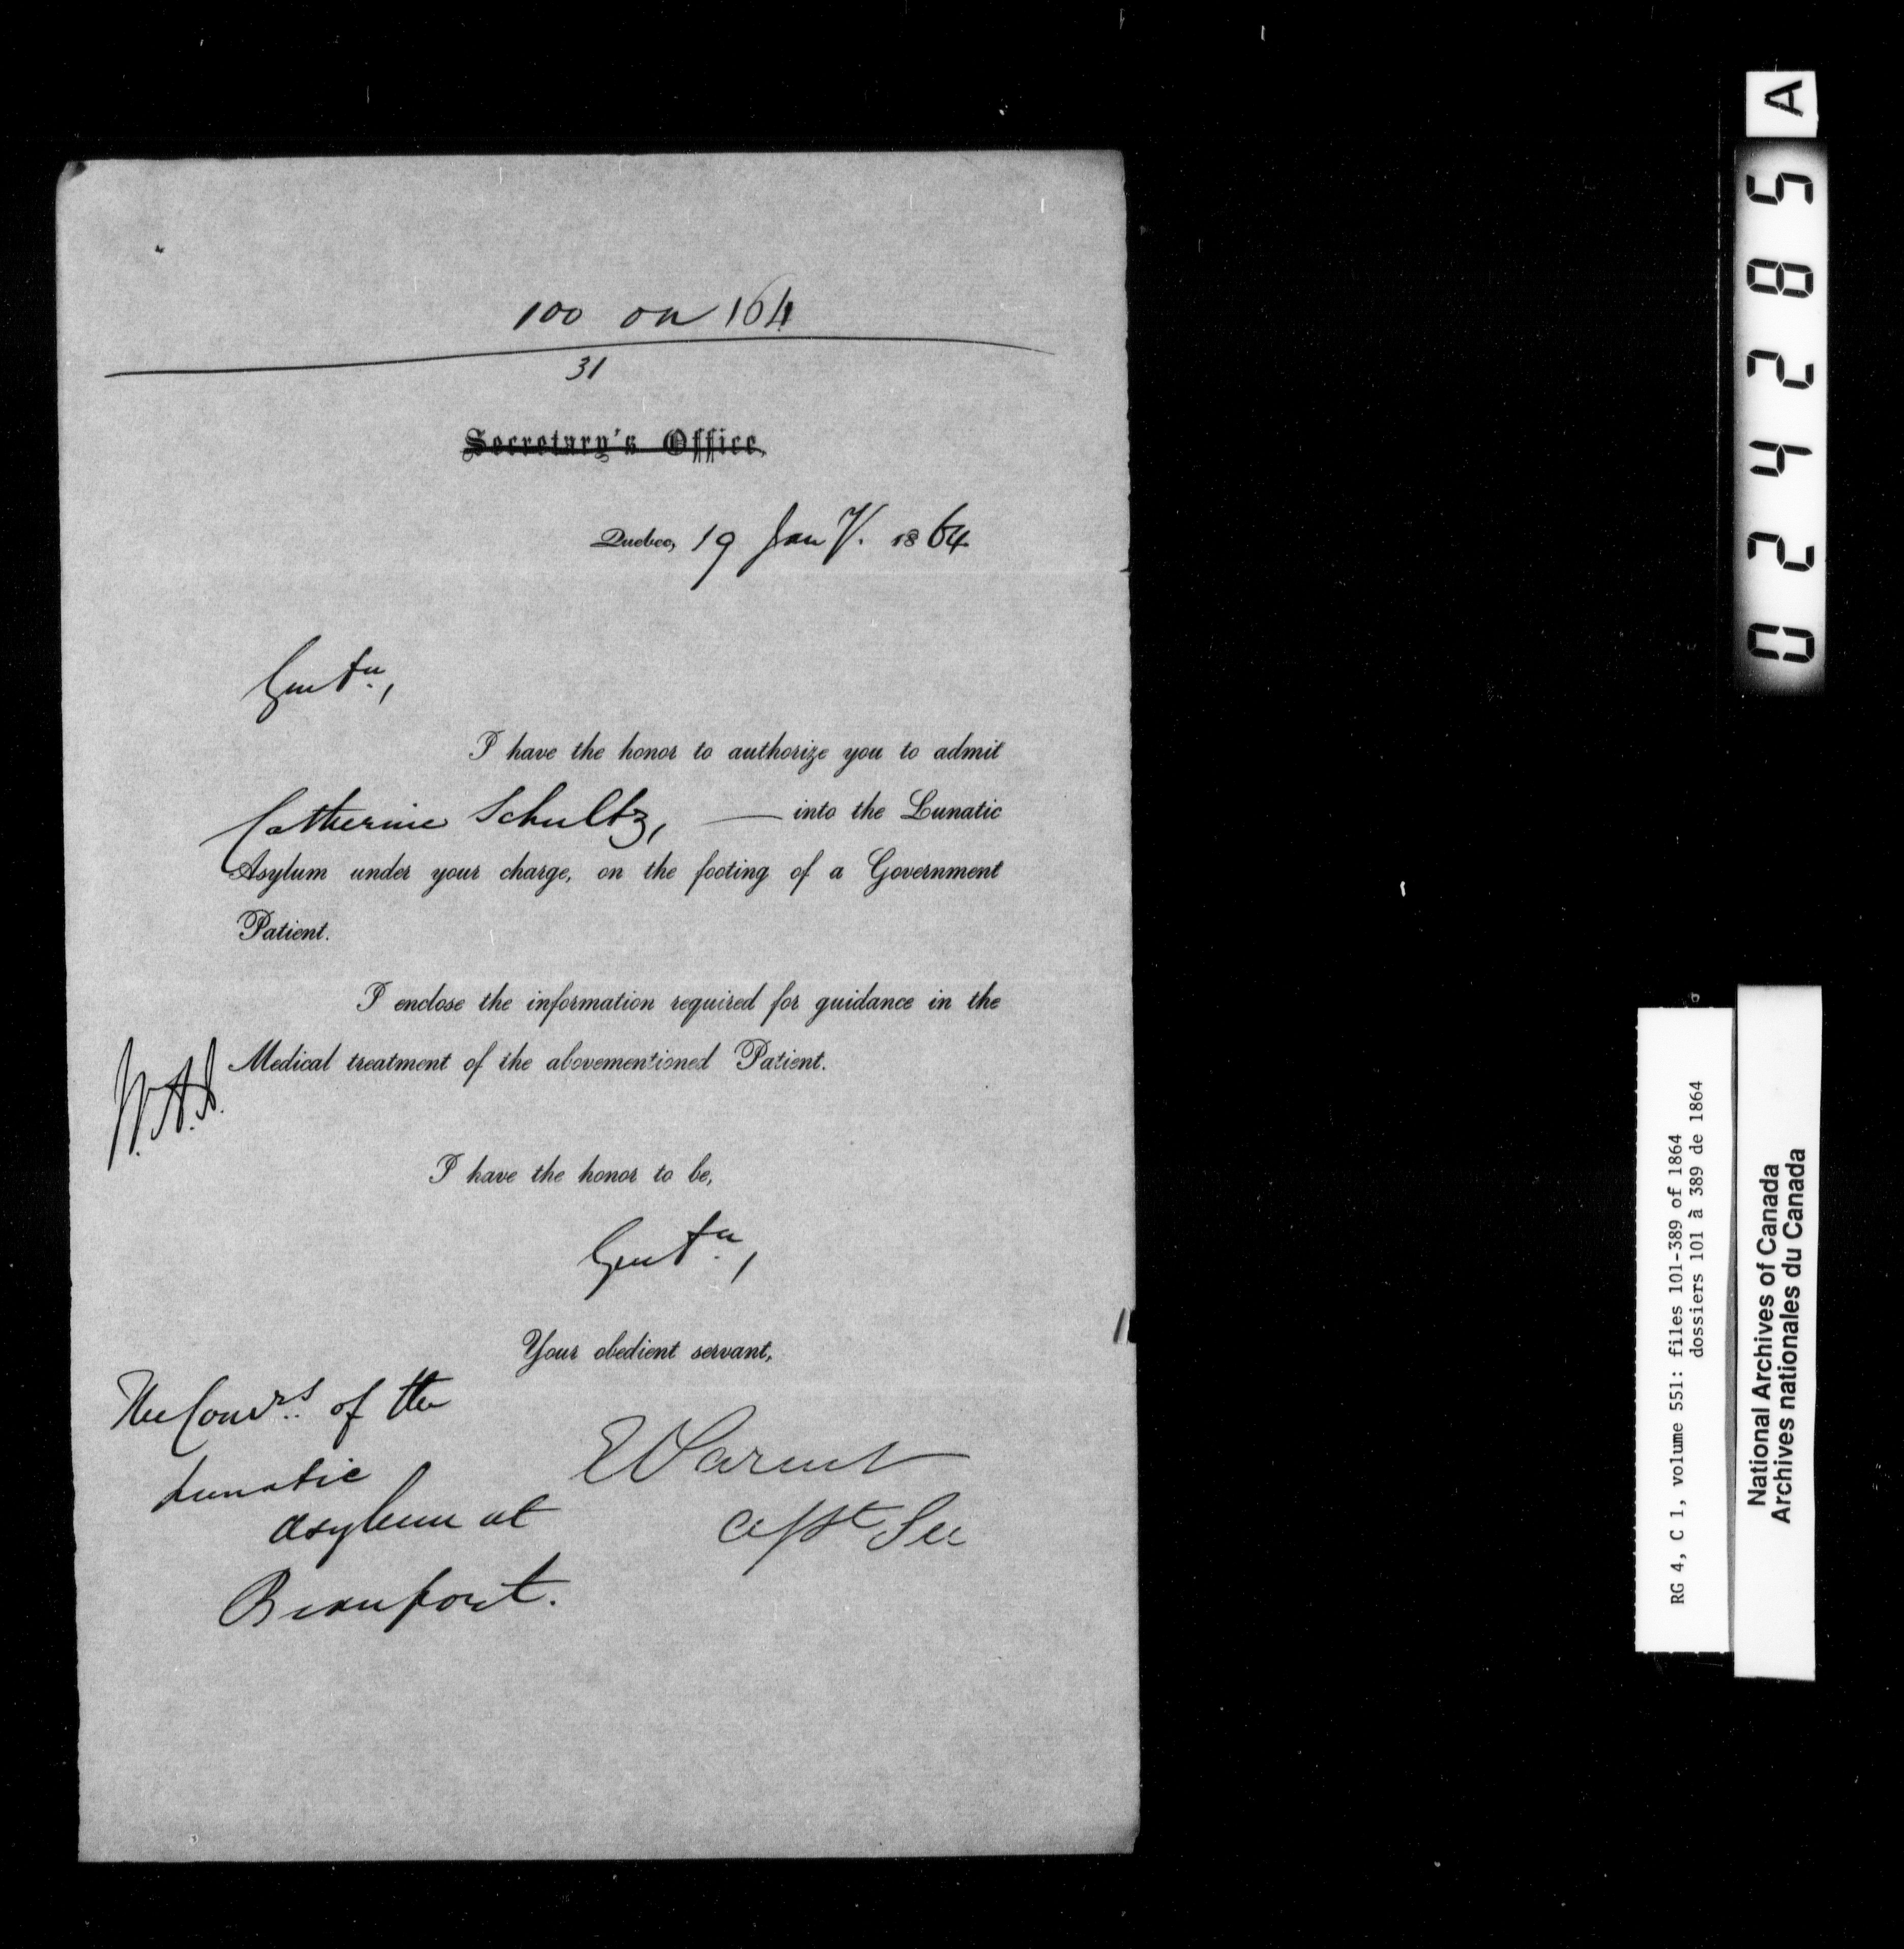 100 on 164
31
Secretary's Office,
Quebec, 19 Jany. 1864
Gentn,
I have the honor to authorize you to admit
Catherine Schultz, — into the Lunatic
Asylum under your charge, on the footing of a Government
Patient.
I enclose the information required for guidance in the
Medical treatment of the abovementioned Patient.
I have the honor to be,
Gentn,
Your obedient servant,
The Comrs. of the
Lunatic
Asylum at
Beauport.
E Parent
Asst Sec
024285 A
RG 4, C 1, volume 551: files 101-389 of 1864
dossiers 101 à 389 de 1864
National Archives of Canada
Archives nationales du Canada